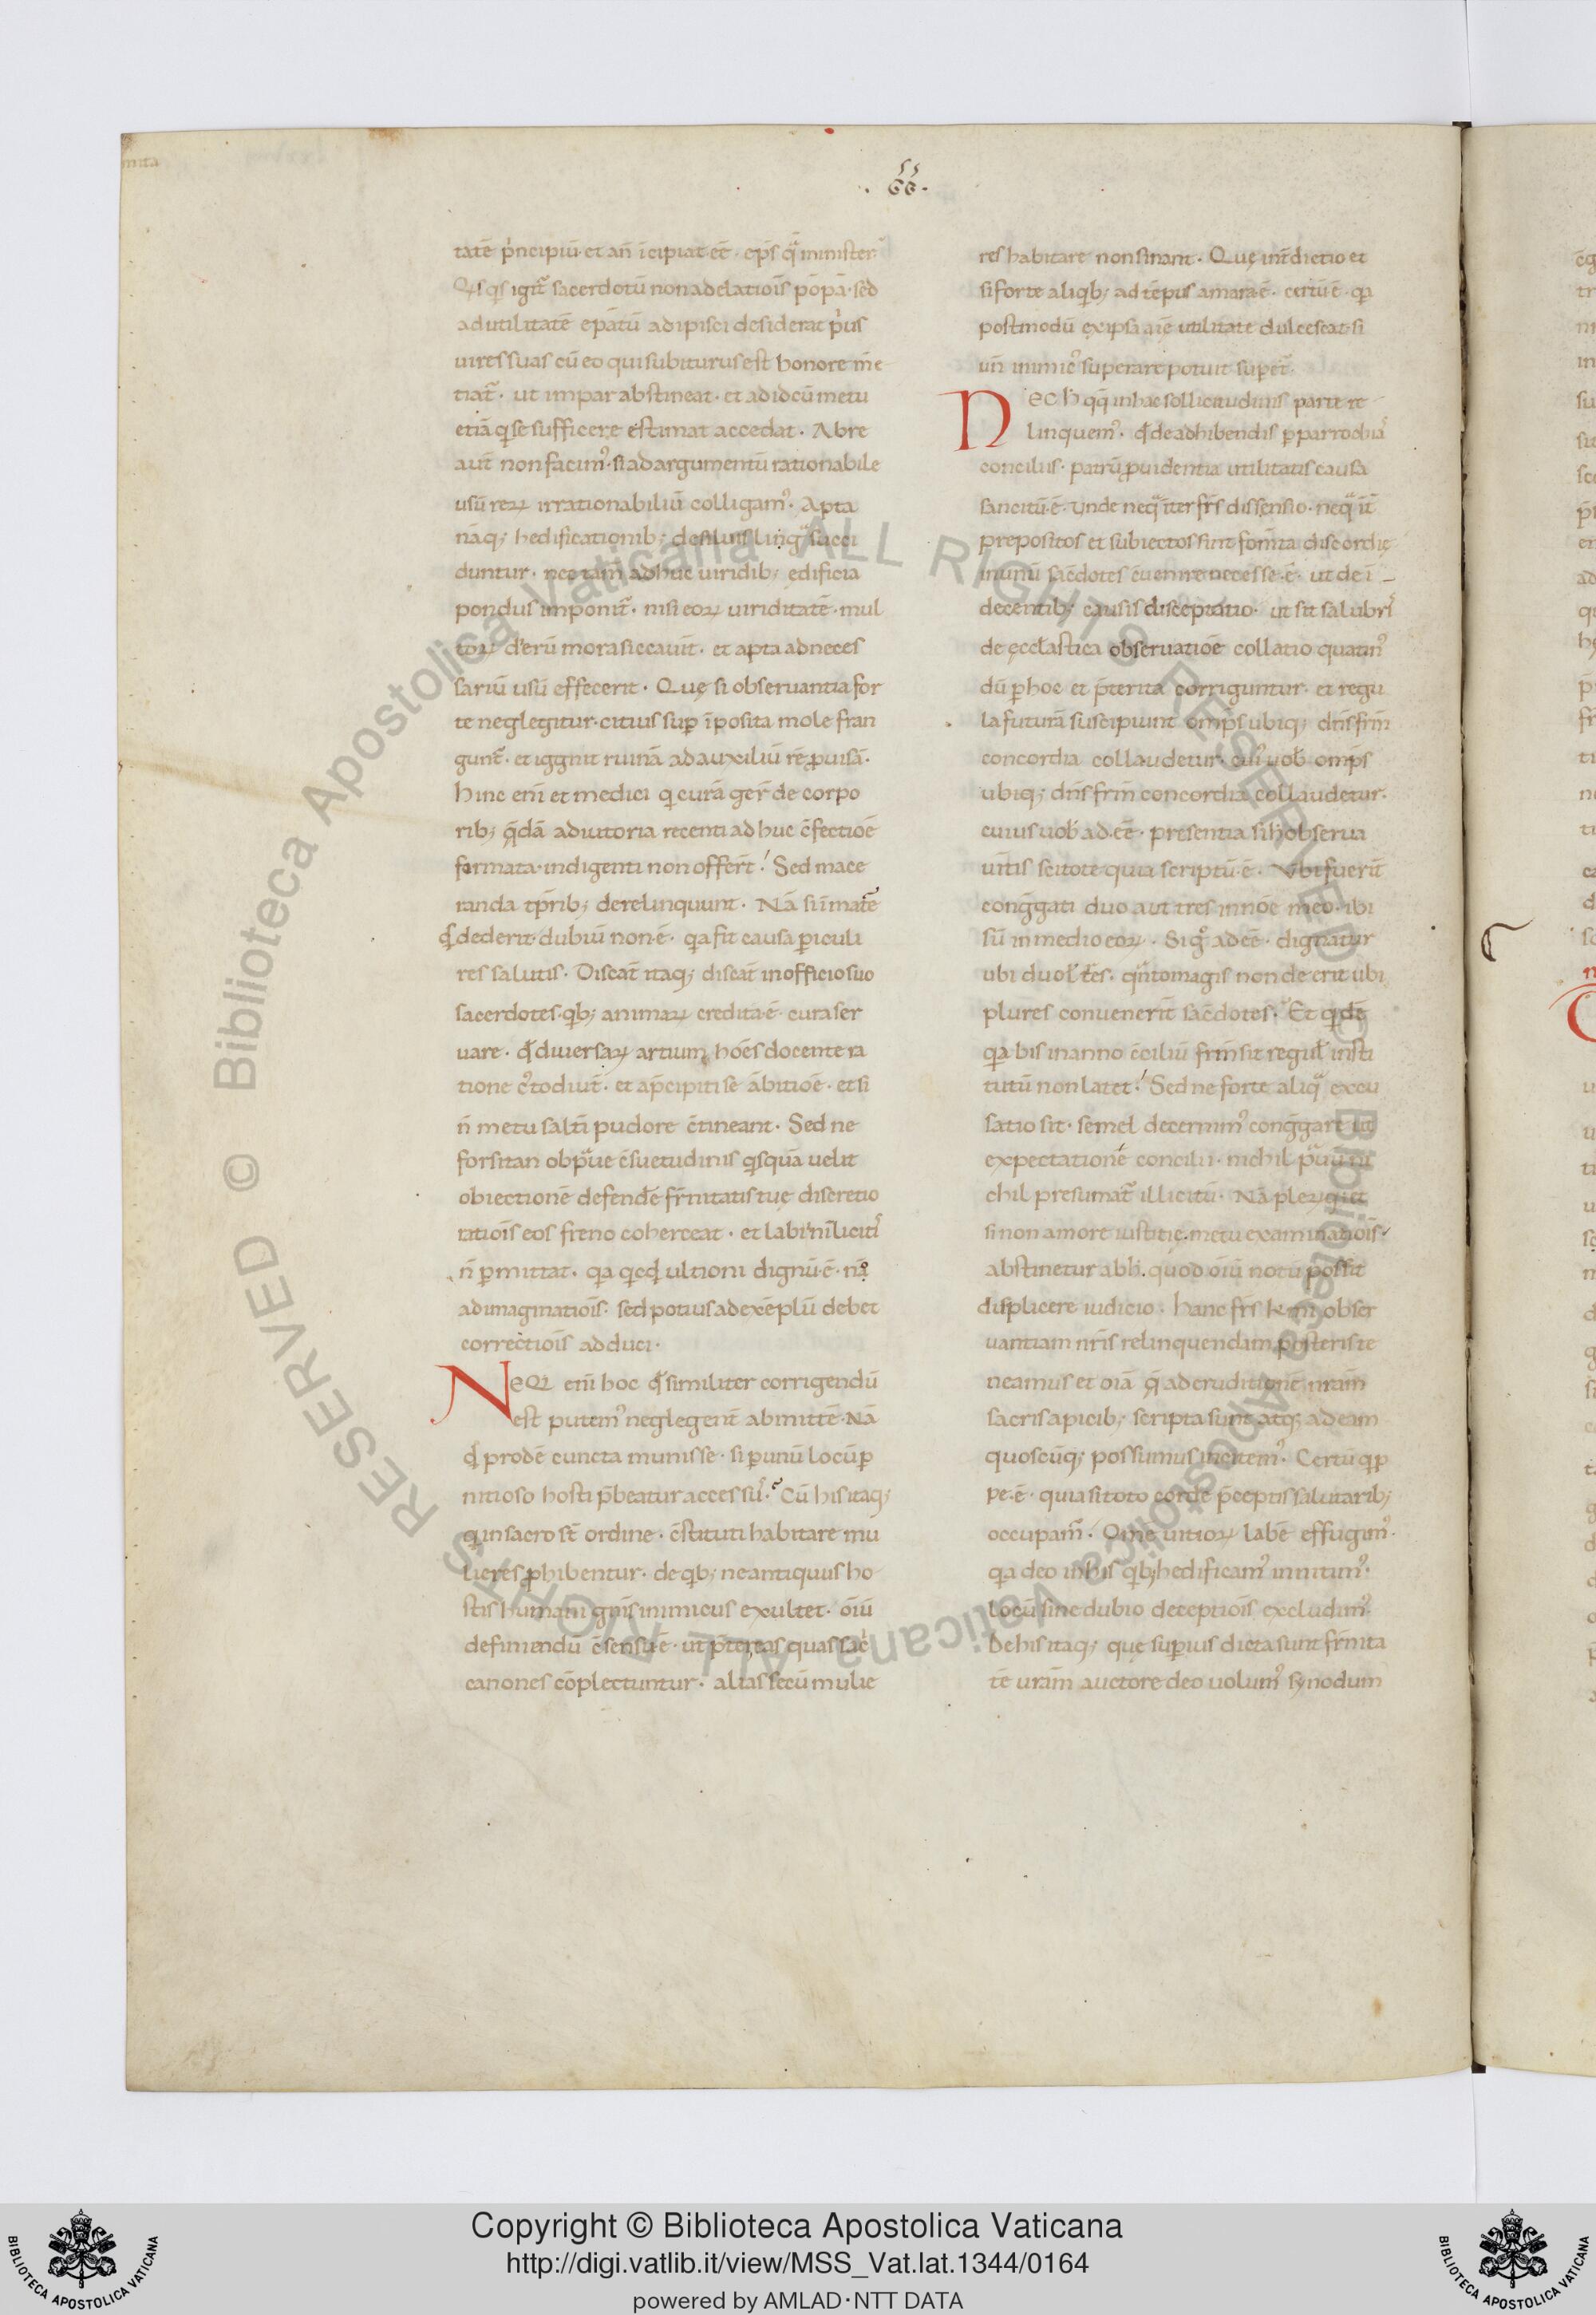 .66.
tatē p̍ncipiū· et an̄ īcipiat·eē· ep̄s q̄ minister
Q̍sq̍s igit᷑ sacerdotū non ad elatiōis pōpā· sed
ad utilitatē ep̄atū adipisci desiderat p̍us
uires suas cū eo qui subiturus est honore me
tiat᷑· ut impar abstineat· et ad id cū metu
etiā q̍ se sufficere estimat accedat· Ab re
aut̄ non facim᷒· si ad argumentū rationabile
usū reꝝ irrationabiliū colligam᷒· Apta
nāq; hedificationib; de siluis ligna succi
duntur· nec tam̄ adhuc uiridib; ędificia
pondus imponit᷑· nisi eoꝝ uiriditatē· mul
toꝝ dierū mora siccauit· et apta ad neces
sariū usū effecerit· Quę si obseruantia for
te neglegitur· citius sup̄ īposita mole fran
gunt᷑· et iggnit ruinā ad auxiliū rē ꝓuisā·
hinc enī et medici q̍ curā ger̄ de corpo
rib; q̄dā adiutoria recenti adhuc c̄fectiōe
formata· indigenti non offer̄t! Sed mace
randa tp̄rib; derelinquunt· Nā si īmatē
q̍ dederit· dubiū non·ē· q̍a fit causa ꝑiculi
res salutis· Discat itaq; discat in officio suo
sacerdotes· q̍b; animaꝝ credita·ē· cura ser
uare· q̍ diuersaꝝ artium hōes docente ra
tione c᷒todiut̄· et ap̄cipiti se ābitiōe· et si
n̄ metu saltī pudore c̄tineant· Sed ne
forsitan ob p̄ue c̄suetudinis q̍squā uelit
obiectionē defendē fr̄nitatis tuę discretio
ratiōis eos freno coherceat· et labi ī illicit᷑
n̄ ꝑmittat· q̍a q̍cq̍d ultioni dignū·ē· nō
ad imaginatiōis· sed potius ad exēplū debet
correctiōis adduci·
Neq; enī hoc q̍ similiter corrigendū
est putem᷒ neglegent̄ abmittē· Nā
q̍ prodē cuncta munisse· si ꝑ unū locū ꝑ
nitioso hosti p̄beatur accessu᷒·? Cū his itaq;
q̍ in sacro st̄ ordine· c̄stituti habitare mu
lieres ꝓhibentur· de q̍b; ne antiquus ho
stis humani gn̄is inimicus exultet· ōiū
definiendū c̄sensu·ē· ut p̄ter eas quas sac᷑
canones cōplectuntur· alias secū mulie
res habitare non sinant· Quę int̄dictio et
si forte aliq̍b; ad tēpus amara·ē· certū·ē· q̍a
postmodū ex ipsa aīę utilitate dulcescat· si
un̄ inimic᷒ superare potuit supet᷑·
Nec h̄ qq̍ in hac sollicitudinis parte re
linquem᷒· q̍ de adhibendis ꝑ parrochia᷑
conciliis· patrū ꝓuidentia utilitatis causa
sancitū·ē· Unde neq̍ iter fr̄s dissensio· neq̍ īt̄
prepositos et subiectos sint fomita discordię
inunū sac̄dotes c̄uenire necesse·ē· ut de ī
decentib; causis disceptatio· ut sit salubri᷑
de ęcclastica obseruatiōe collatio quatin᷒
dū ꝑ hoc et p̄terita corriguntur· et regu
la futurā suscipiunt omp̄s ubiq; dn̄s fr̄m
concordia collaudetur· cui᷒ uob̄ omp̄s
ubiq; dn̄s fr̄m concordia collaudetur·
cuius uob̄ ad·eē· presentia si h̄ obserua
uitis scitote quia scriptū·ē· Ubi fuerit̄
cong̅gati duo aut tres in nōe meo· ibi
sū in medio eoꝝ· Si g᷑ adeē· dignatur
ubi duo t̄ t̄es· q̄ntomagis non de erit ubi
plures conuenerit̄ sac̄dotes·? Et q̍dē
q̍a bis in anno c̄ciliū fr̄m sit regul᷑ insti
tutū non latet! Sed ne forte aliq̍ excu
satio sit· semel decernim᷒ cong̅gare ut
expectationē concilii· nichil p̄uū ni
chil presumat᷑ illicitū· Nā pleꝝq̍ et
si non amore iustitię· metu examinatiōis
abstinetur ab h̄· quod ōiū notū possit
displicere iudicio· hanc fr̄s k̄mi obser
uantiam nr̄is relinquendam posteris te
neamus et oīa q̄ ad eruditionē nr̄am
sacris apicib; scripta sunt atq; ad eam
quoscūq; possumus incitem᷒· Certū q̍p
pe·ē· quia si toto corde p̄ceptis salutarib;
occupam᷑· Omē uitioꝝ labē effugim᷒·
q̍a deo in his q̍b; hedificam᷒ innitim᷒·
locū sine dubio deceptiōis excludim᷒·
De his itaq; quę superius dicta sunt fr̄nita
tē uram̄ auctore deo uolum᷒ synodum
© Biblioteca Apostolica Vaticana ALL RIGHTS RESERVED
© Biblioteca Apostolica Vaticana ALL RIGHTS RESERVED
Copyright © Biblioteca Apostolica Vaticana
http://digi.vatlib.it/view/MSS_Vat.lat.1344/0164
powered by AMLAD·NTT DATA
BIBLIOTECA APOSTOLICA VATICANA
BIBLIOTECA APOSTOLICA VATICANA